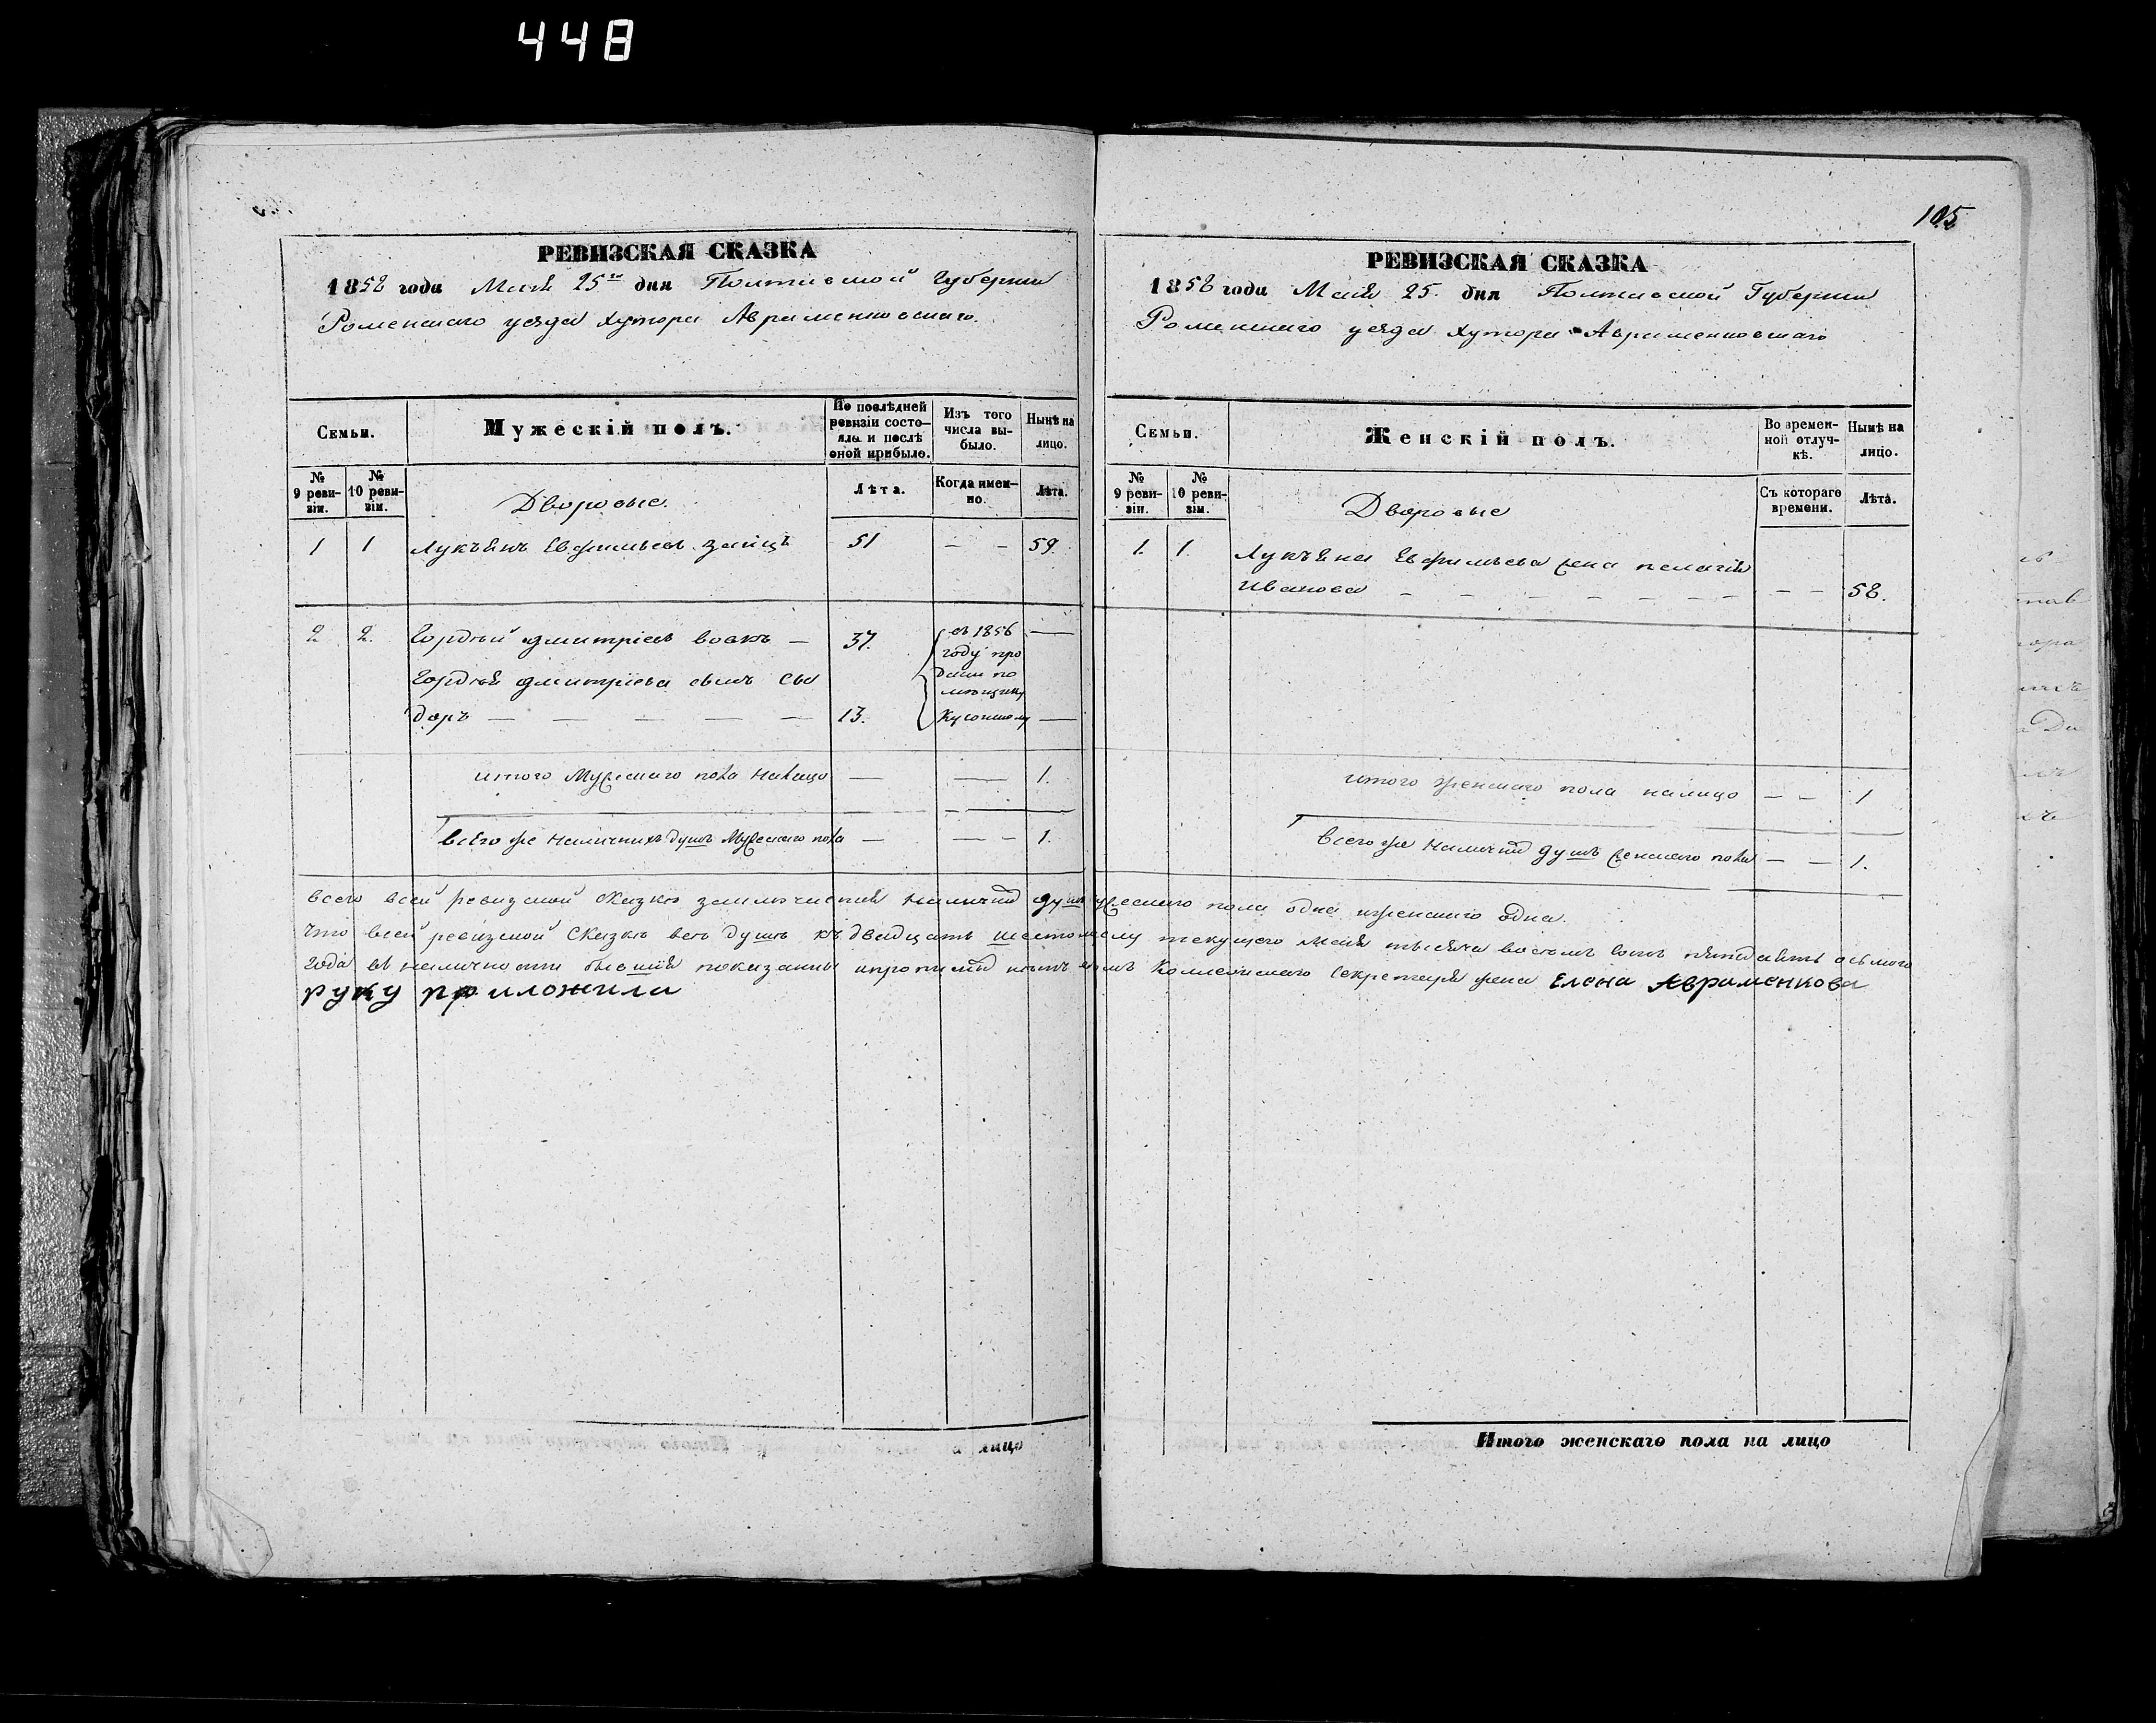 448
105
РЕВИЗСКАЯ СКАЗКА
1858 года Мая 25го дня Полтавской Губерніи
Роменскаго уезда хутора Авраменковскаго.
Семьи.
Мужескій полъ.
По послѣдней ревизіи состо-
яло и послѣ оной прибыло.
Изъ того числа вы-
было.
Нынѣ на лицо.
№ 9 реви-
зіи.
№ 10 реви-
зіи.
Дворовые.
Лѣта.
Когда имен-
но.
Лѣта.
1 1 Лукъянъ Евфимьевъ Заицъ 51 – – 59.
2 2. Гордѣй Дмитріевъ Вовкъ – 37. въ 1856 —
году про
Гордѣя Дмитріева сынъ Сы
даны по
мѣщику
доръ — — — — — 13. —
итого Мужескаго пола налицо — — 1.
всего же наличныхъ душъ Мужескаго пола — – – 1.
РЕВИЗСКАЯ СКАЗКА
1858 года Мая 25. дня Полтавской Губерніи
Роменскаго уезда хутора Авраменковскаго
Семьи.
Женскій полъ.
Во времен-
ной отлуч-
кѣ.
Нынѣ на лицо.
№ 9 реви-
зіи.
№ 10 реви-
зіи.
Дворовые
Съ котораго времени.
Лѣта.
1. 1. Лукъяна Евфимьева жена Пелагія
Иванова – – – – – – – – – 58.
итого женскаго пола налицо – – 1
всего же наличныхъ душъ женскаго пола – – 1.
всего в сей ревизской сказкѣ заключается наличныхъ душъ мужескаго пола одна и женскаго одна.
Что в сей ревизской Сказкѣ все душъ къ двадцать шестому текущего Мая тысяча восемь сотъ пятдесятъ осьмого
года въ наличности бывшія показаны и прописныхъ нѣтъ Коллежскаго Секретаря жена Елена Авраменкова
руку приложила
лицо
Итого женскаго пола на лицо